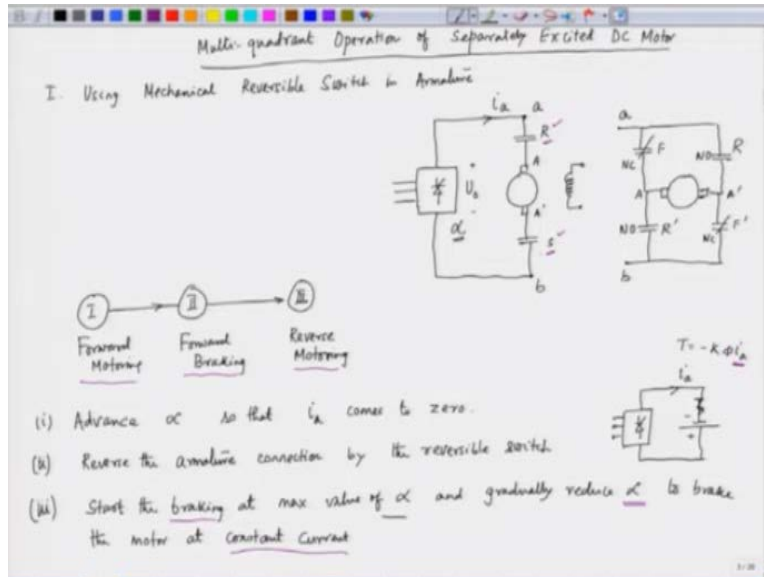 Multi-quadrant Operation of Separately Excited DC Motor
I. Using Mechanical Reversible Switch in Armature
ia a
R
A
U0
α
A'
s
b
a
F
NC
NO R
A A'
NO R'
F'
NC
b
I II III
Forward Motoring
Forward Braking
Reverse Motoring
T = -KΦia
ia
- +
(i) Advance α so that ia comes to zero.
(ii) Reverse the armature connection by the reversible switch
(iii) Start the braking at max value of α and gradually reduce α to brake
the motor at constant current